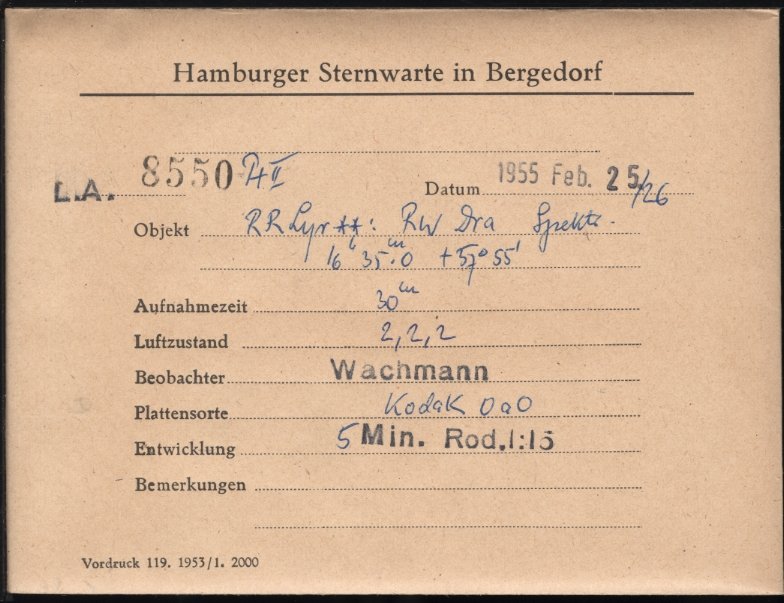 Hamburger Sternwarte in Bergedorf
L.A. 8550 Pr II
Datum 1955 Feb. 25/26
Objekt RR Lyr **: RW Dra Spektr.
16h 35m.0 +57° 55'
Aufnahmezeit 30m
Luftzustand 2,2,2
Beobachter Wachmann
Plattensorte Kodak OaO
Entwicklung 5 Min. Rod.1:15
Bemerkungen
Vordruck 119. 1953/1. 2000